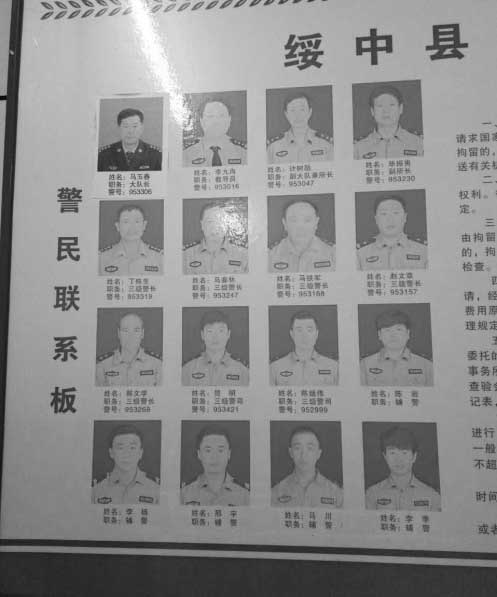 绥中县
警民联系板
姓名：马玉春
职务：大队长
警号：953306
职务：教导员
警号：953016
姓名：计树勋
职务：副大队兼所长
警号：953047
姓名：毕振勇
职务：副所长
警号：953230
姓名：丁栋生
职务：三级警长
警号：953319
姓名：马春林
职务：三级警长
警号：953247
姓名：马铁军
职务：三级警长
警号：953168
姓名：赵文章
职务：三级警长
警号：953157
姓名：郭文学
职务：三级警长
警号：953268
姓名：贺 明
职务：三级警司
警号：953421
姓名：陈廷伟
职务：三级警司
警号：952999
姓名：陈 岩
职务：辅 警
姓名：李 杨
职务：辅 警
姓名：邢 宇
职务：辅 警
姓名：马 川
职务：辅 警
姓名：李 季
职务：辅 警
一、
请求国家
拘留的，
送有关机
二
权利。
定。
三
由拘留
的，拘
检查。
四
请，经
费用原
理规定
五
委托的
事务所
查验会
记表，
进行
一般
不超
时间
或者